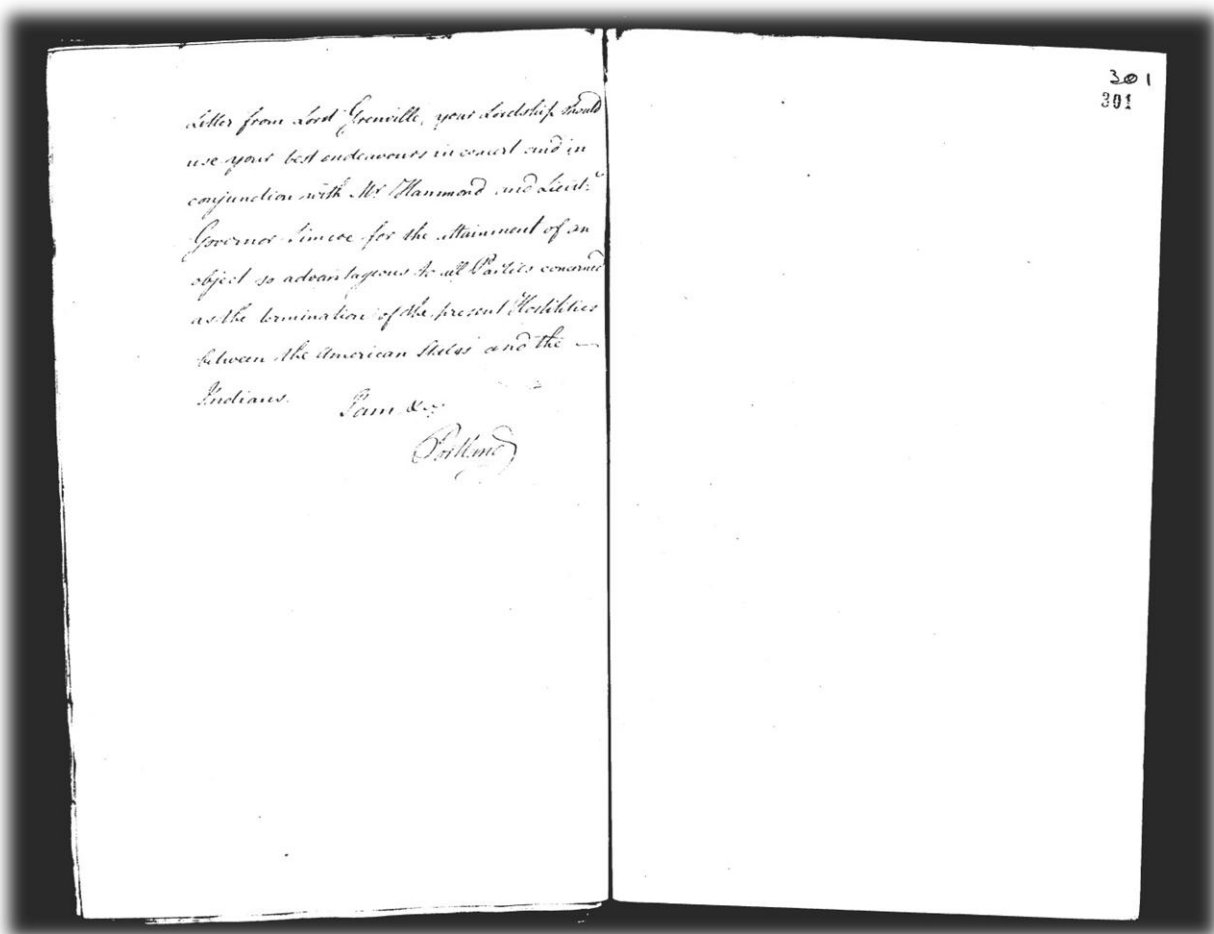 Letter from Lord Grenville, your Lordship should
use your best endeavours in concert and in
conjunction with Mr. Hammond and Lieut.
Governor Simcoe for the attainment of an
object so advantageous to all Parties concerned
as the termination of the present Hostilities
between the American States and the —
Indians.
I am &c
Portland
301
301